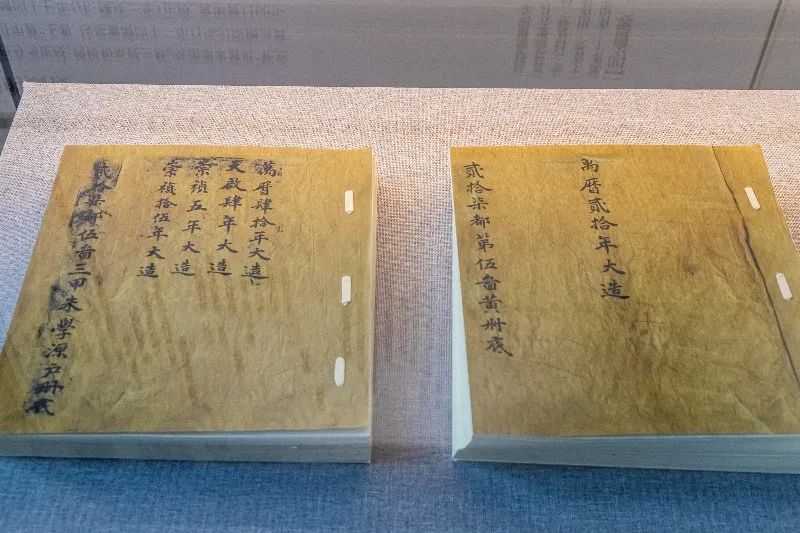 萬曆肆拾年大造
天啟肆年大造
崇禎五年大造
崇禎拾伍年大造
貳拾柒都伍啚三甲朱學源户册底
萬曆貳拾年大造
貳拾柒都第伍啚黃册底